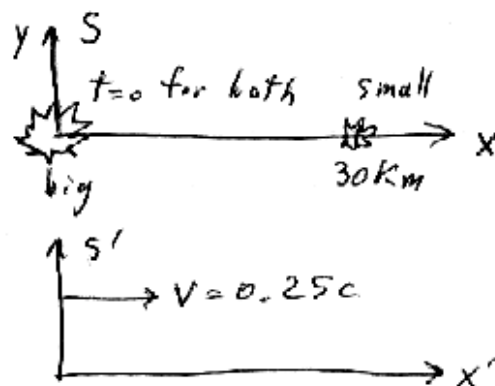 y S
t=0 for both small
x
big 30Km
s'
V=0.25c
x'